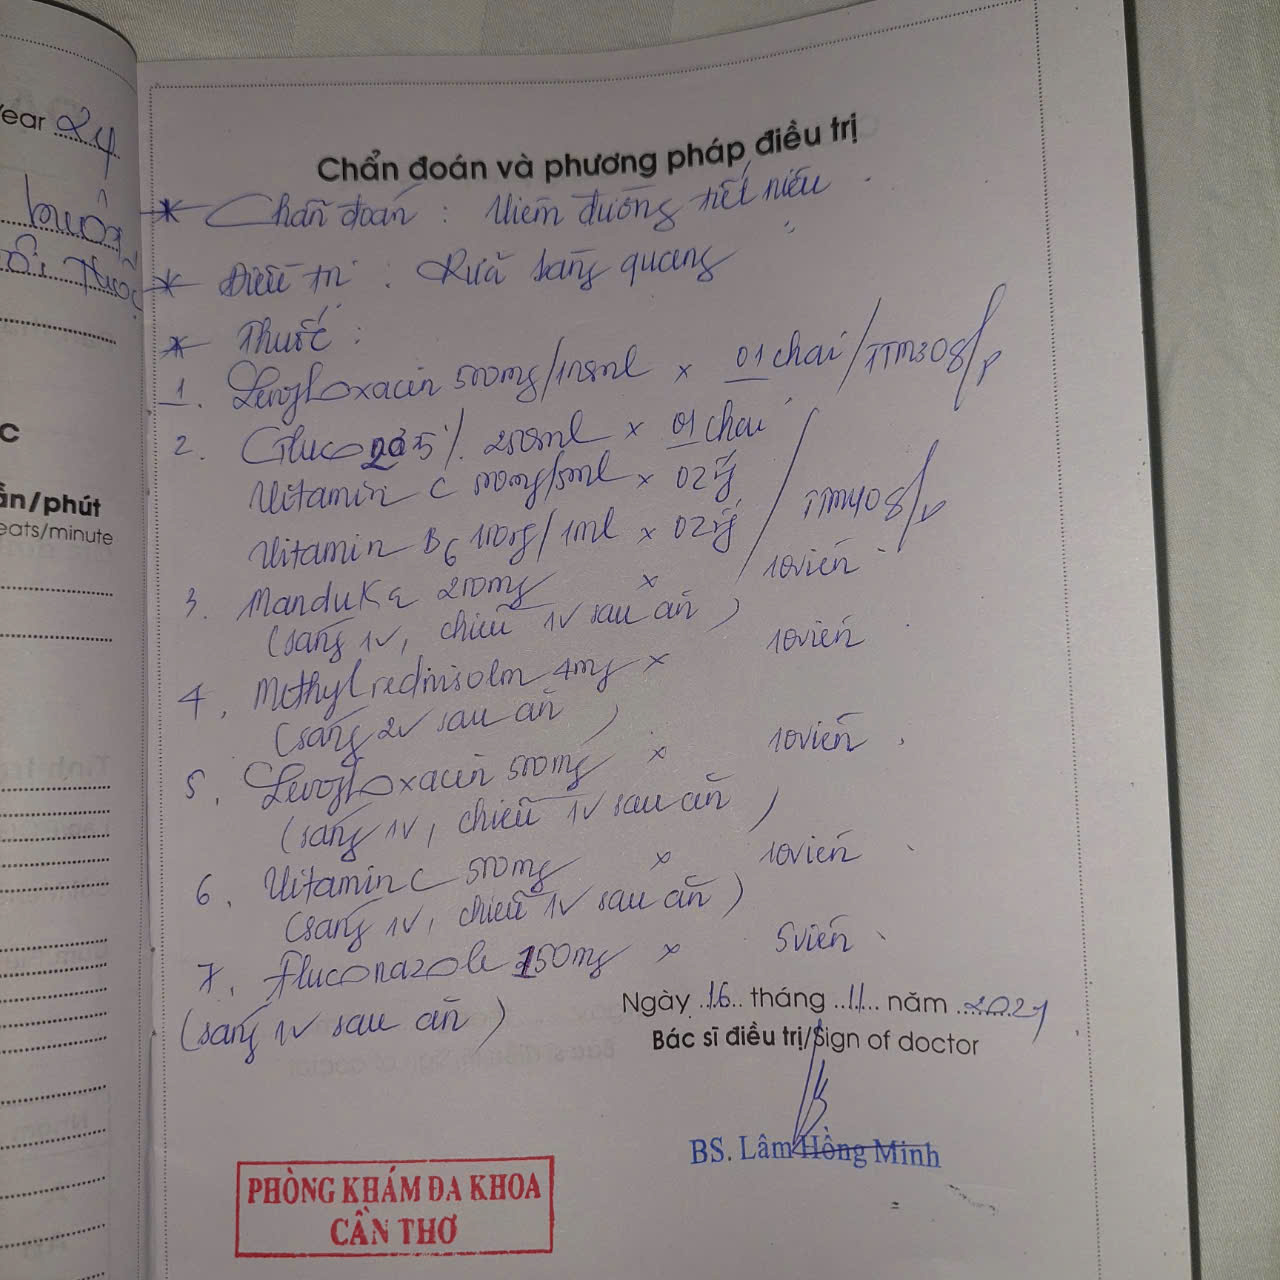 Year 24
Chẩn đoán và phương pháp điều trị
* Chẩn đoán : Viêm đường tiết niệu
* Điều trị : Rửa bàng quang
* Thuốc :
1. Levofloxacin 500mg/100ml x 01 chai / TTM 30g/p
2. Glucozơ 5% 250ml x 01 chai
Vitamin C 500mg/5ml x 02
Vitamin B6 100mg/1ml x 02 / TTM 40g/p
3. Manduka 200mg x 10 viên
(sáng 1v, chiều 1v sau ăn)
4. Methylrednisolm 4mg x 10 viên
(sáng 2v sau ăn)
5. Levofloxacin 500mg x 10 viên
(sáng 1v, chiều 1v sau ăn)
6. Vitamin C 500mg x 10 viên
(sáng 1v, chiều 1v sau ăn)
7. Fluconazole 150mg x 5 viên
(sáng 1v sau ăn)
Ngày 16 tháng 11 năm
Bác sĩ điều trị/Sign of doctor
BS. Lâm Hồng Minh
PHÒNG KHÁM ĐA KHOA
CẦN THƠ
C
ần/phút
eats/minute